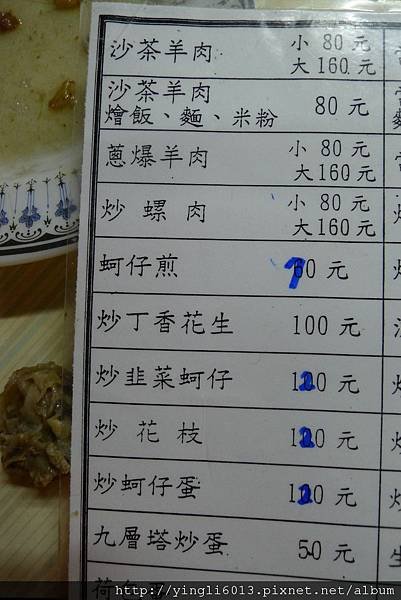 沙茶羊肉 小 80 元
大 160 元
沙茶羊肉
燴飯、麵、米粉 80 元
蔥爆羊肉 小 80 元
大 160 元
炒螺肉 小 80 元
大 160 元
蚵仔煎 70 元
炒丁香花生 100 元
炒韭菜蚵仔 120 元
炒花枝 120 元
炒蚵仔蛋 120 元
九層塔炒蛋 50 元
荷包蛋
http://yingli6013.pixnet.net/album